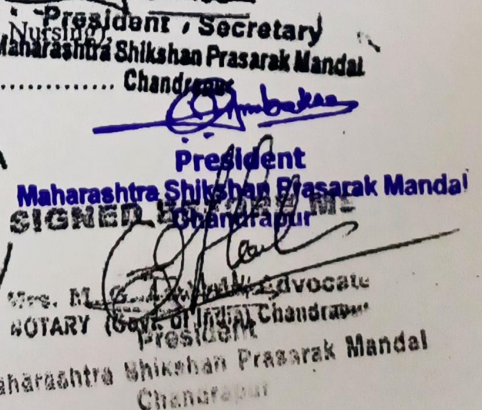 Nursing),
President / Secretary
Maharashtra Shikshan Prasarak Mandal
.............. Chandrapur
President
Maharashtra Shikshan Prasarak Mandal
Chandrapur
SIGNED BEFORE ME
Mrs. M. G. Advocate
NOTARY (Govt. of India) Chandrapur
President
Maharashtra Shikshan Prasarak Mandal
Chandrapur